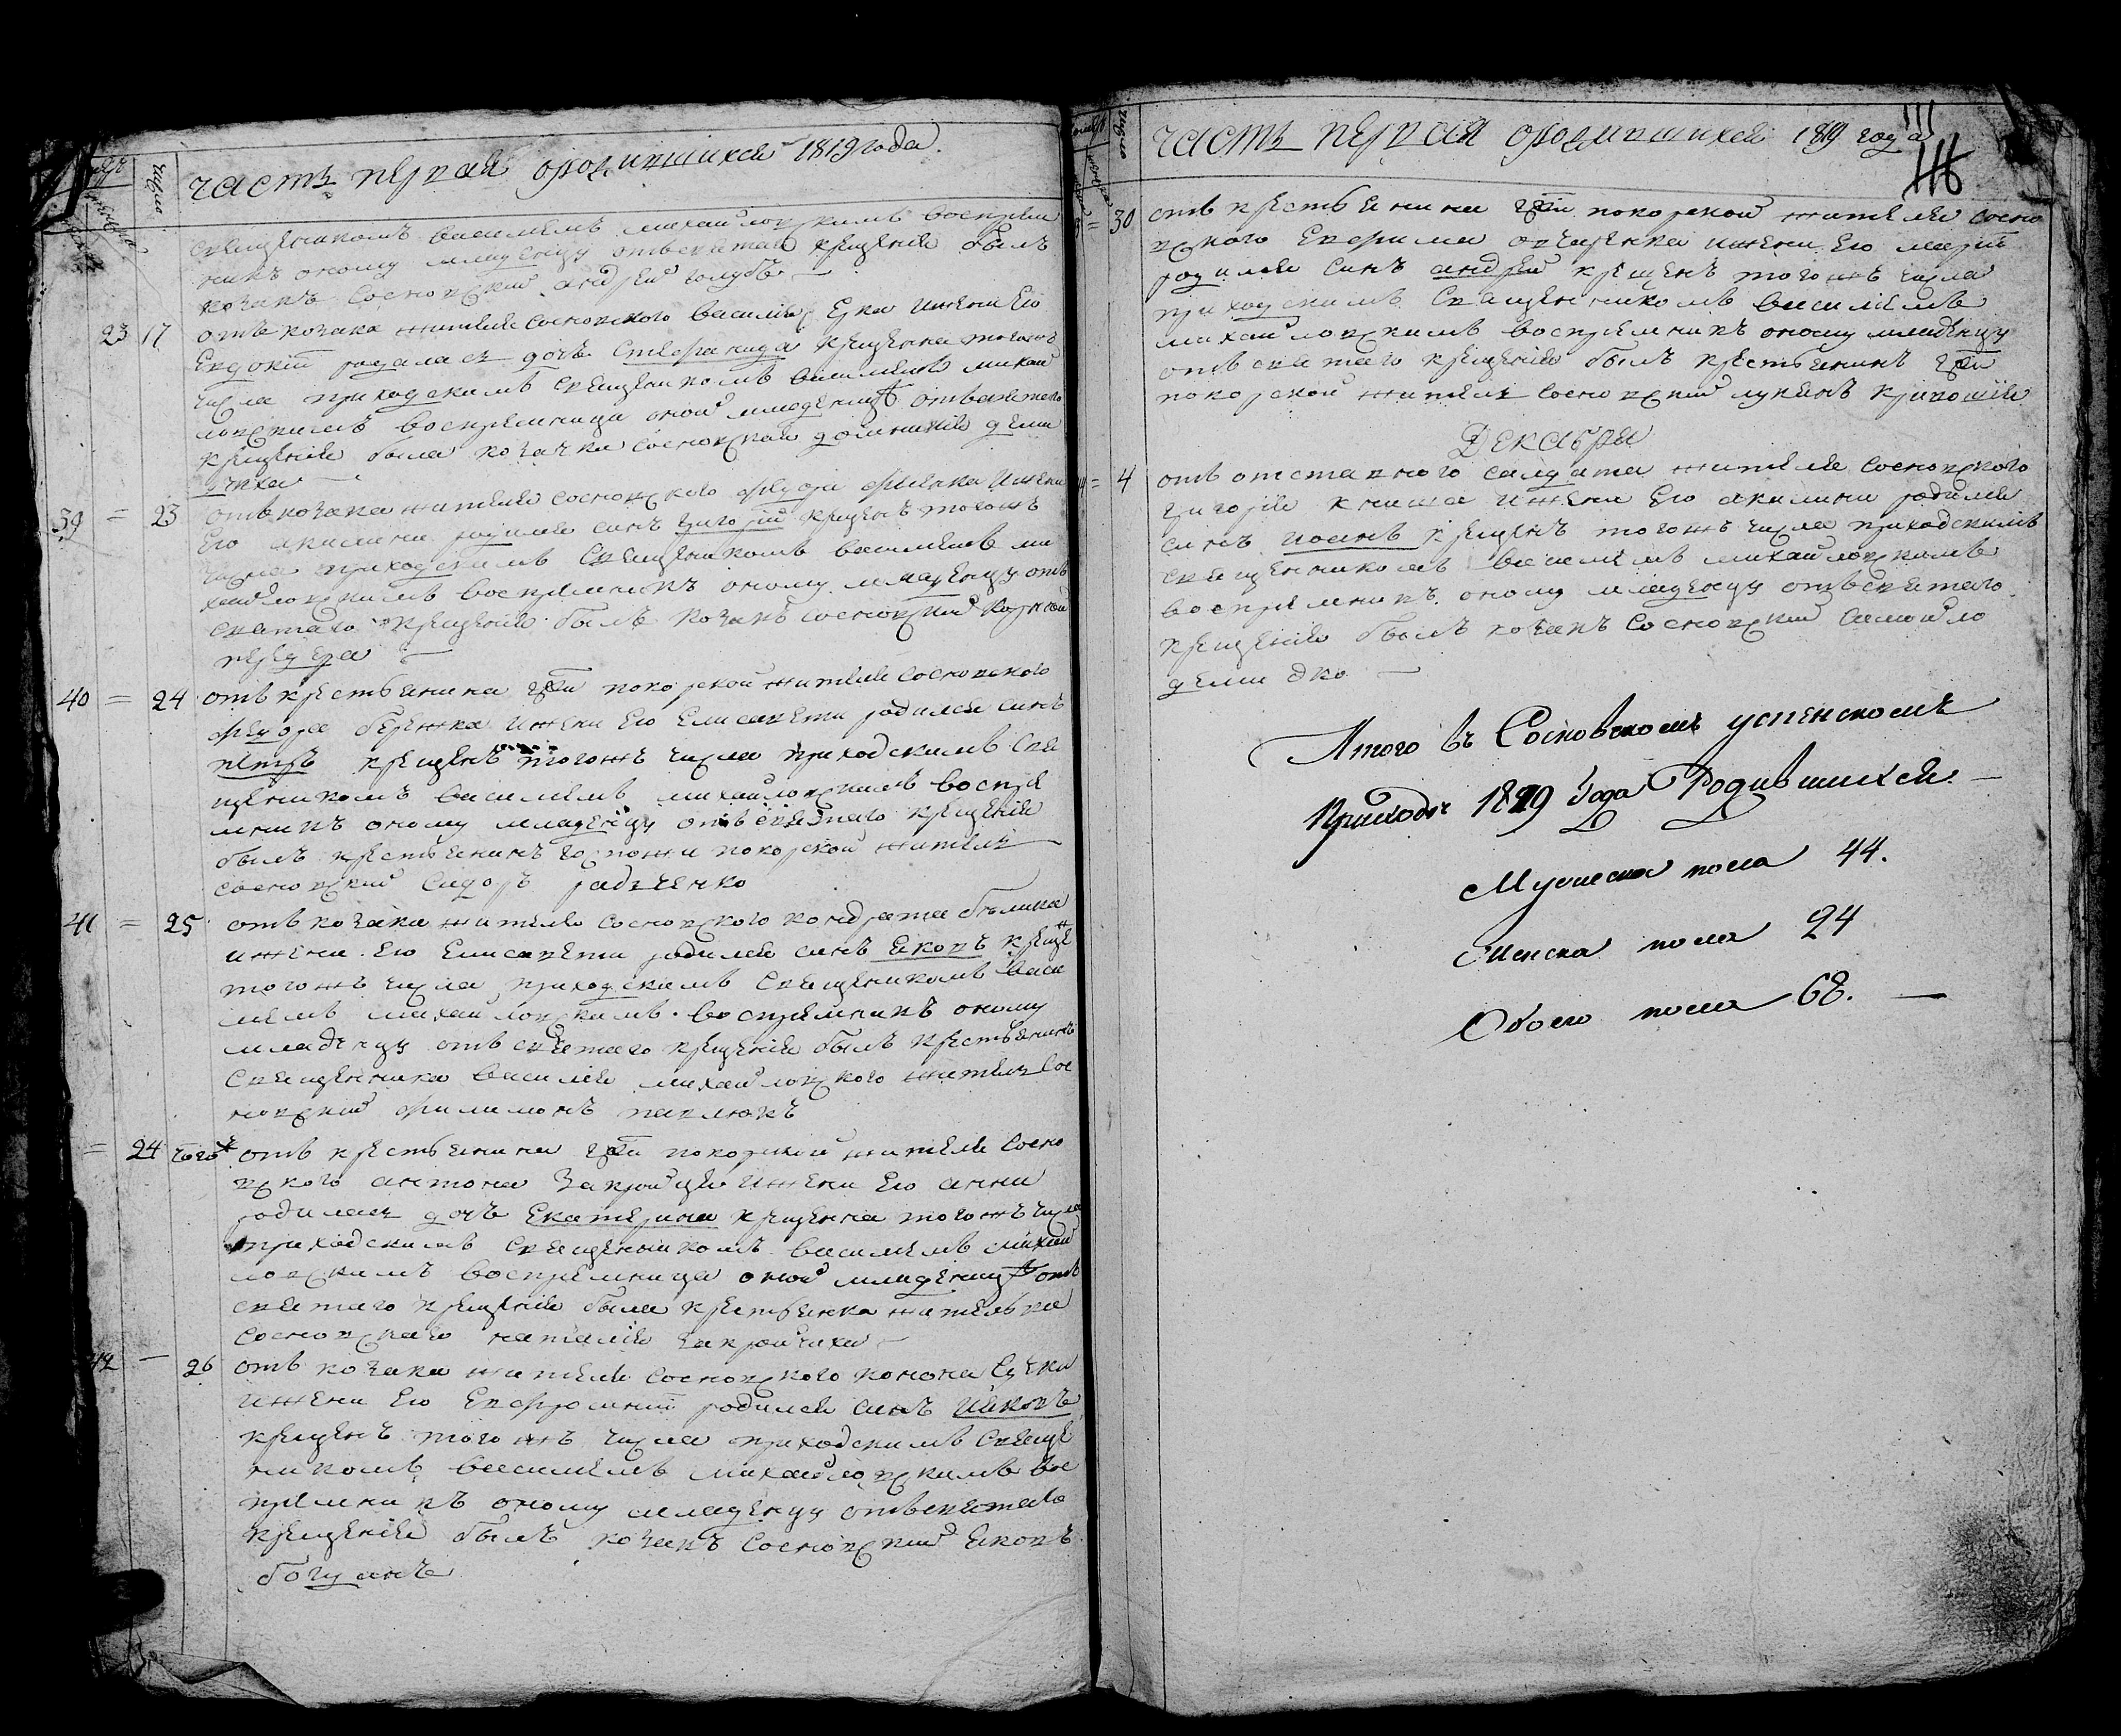 часть первая ородившихся 1819 года.
число
священикомъ василиемъ михайловскимъ восприем
никъ оному младенцу отъ святаго крещения былъ
козакъ сосновский андрей голубъ
23 17 отъ козака жителя сосновского василия Iжени его
Евдокии родилась дочь Стефанида крещенна тогожъ
числа приходскимъ священикомъ василиемъ михай
ловскимъ восприемница оной младеницѣ отъ святаго
крещения была козачка сосновская домникия деми
39 = 23 отъ козака жителя сосновского федора ижени
его акилини родился синъ григорий крещенъ тогожъ
числа приходскимъ священикомъ василиемъ ми
хайловскимъ восприемникъ оному младенцу отъ
святаго крещения былъ козакъ сосновский корней
передера
40 = 24 отъ крестьянина гжи покорской жителя сосновского
федора бережка ижени его Елисавети родился синъ
петръ крещенъ тогожъ числа приходскимъ свя
щеникомъ василиемъ михайловскимъ восприе
мникъ оному младенцу отъ святаго крещения
былъ крестьянинъ госпожи покорской житель
сосновский сидоръ радченко
41 = 25 отъ козака жителя сосновского кондрата
ижени его Елисавети родился синъ яковъ креще
тогожъ числа приходскимъ священикомъ васи
лиемъ михайловскимъ восприемникъ оному
младенцу отъ святаго крещения былъ крестьянинъ
священника василия михайловского житель сос
новский филимонъ павлюкъ
= 24 тогож отъ крестьянина гжи покорской жителя сосно
вского антона закройця ижени его анни
родилась дочь Екатерина крещенна тогожъ числа
приходскимъ священикомъ василиемъ михай
ловскимъ восприемница оной младеницѣ отъ
святаго крещения была крестьянка жителька
сосновская наталия закройчиха
42 — 26 отъ козака жителя сосновского конона
ижени его Евфросинии родился синъ иаковъ
крещенъ тогожъ числа приходскимъ свяще
никомъ василиемъ михайловскимъ вос
приемникъ оному младенцу отъ святаго
крещения былъ козакъ сосновский яковъ
богданъ
число
часть первая ородившихся 1819 года
111
116
= 30 отъ крестьянина гжи покорской жителя сосно
вского Евфима овчаренка ижени его марии
родился синъ андрей крещенъ тогожъ числа
приходскимъ священникомъ василиемъ
михайловскимъ восприемникъ оному младенцу
отъ святаго крещения былъ крестьянинъ гжи
покорской житель сосновский лукянъ кривошия
Декабря
= 4 отъ отставного салдата жителя сосновского
григория книша ижени его акилини родился
синъ иоанъ крещенъ тогожъ числа приходскимъ
священникомъ василиемъ михайловскимъ
восприемникъ оному младенцу отъ святаго
крещения былъ козакъ сосновский самойло
демидко
Итого въ Сосновскомъ успенскомъ
приходѣ 1819 Года Родившихся
Мужеска пола 44.
Женска пола 24
Обоего пола 68.